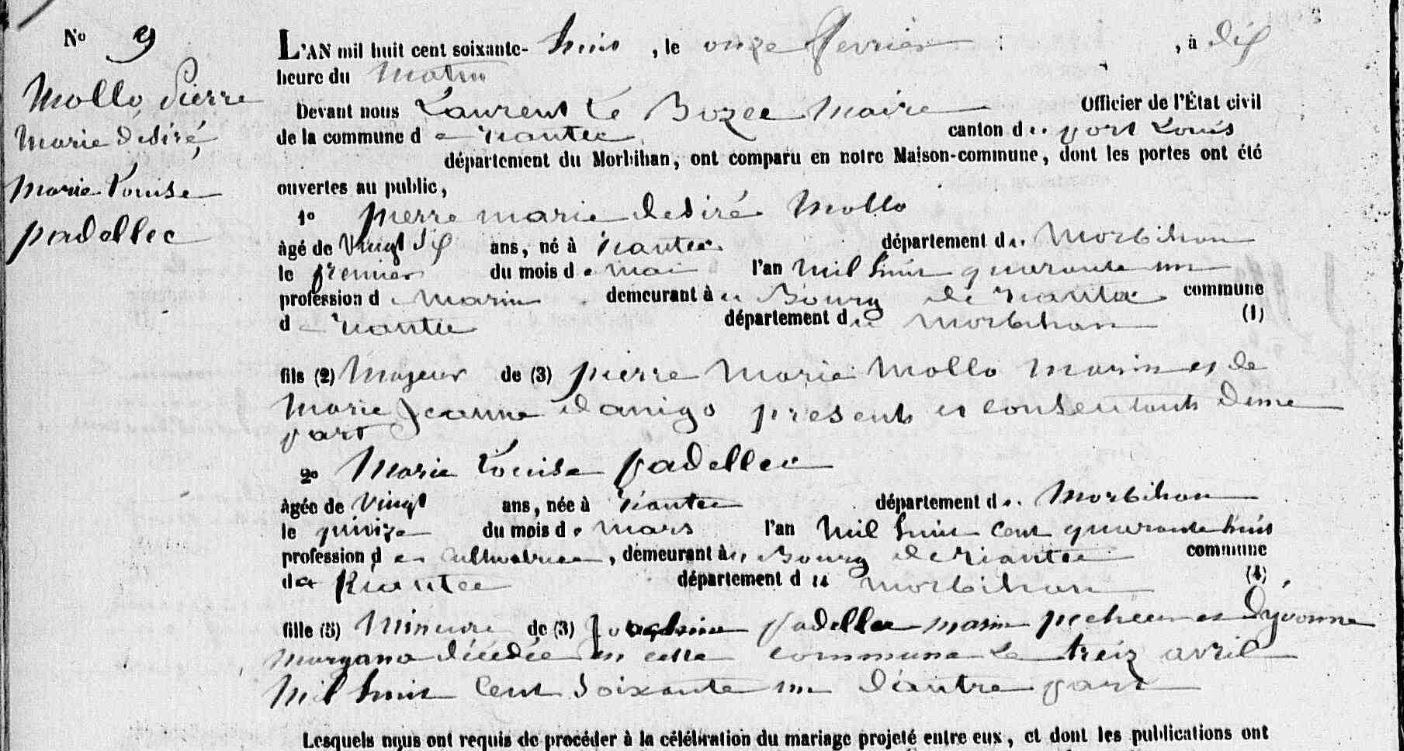 N° 9
Mollo Pierre
Marie désiré
Marie Louise
padellec
L'AN mil huit cent soixante- huit , le onze fevrier , à dix
heure du matin
Devant nous Laurent Le Bozec Maire Officier de l'État civil
de la commune d e riantec canton d u port Louis
département du Morbihan, ont comparu en notre Maison-commune, dont les portes ont été
ouvertes au public,
1° pierre marie desiré Mollo
âgé de vingt six ans, né à riantec département d u Morbihan
le premier du mois d e mai l'an mil huit quarante un
profession d e marin demeurant à u Bourg de riantec commune
d e riantec département d u morbihan (1)
fils (2) Majeur de (3) pierre Marie Mollo marin et de
Marie Jeanne danigo presents et consentants d'une
part
2° Marie Louise padellec
âgée de vingt ans, née à riantec département d u Morbihan
le quinze du mois d e mars l'an mil huit cent quarante huit
profession d e cultivatrice , demeurant à u Bourg de riantec commune
d e Riantec département d u morbihan (4)
fille (5) Mineure de (3) padellec marin pecheur et d'yvonne
décédée en cette commune le treize avril
mil huit cent soixante un d'autre part
Lesquels nous ont requis de procéder à la célébration du mariage projeté entre eux, et dont les publications ont